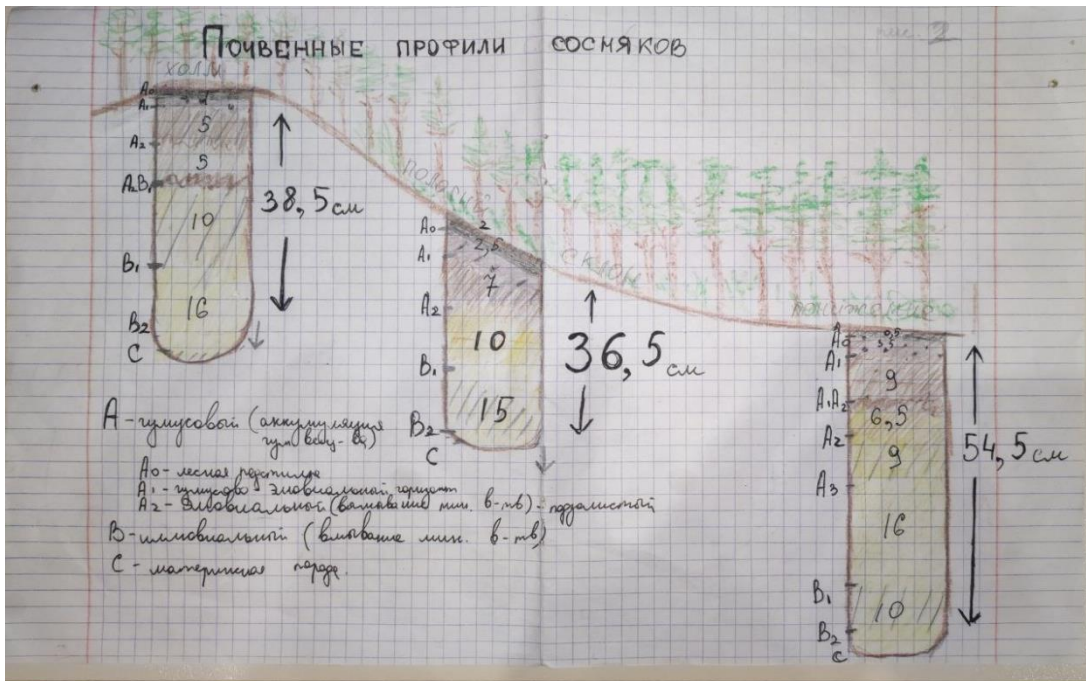 рис. 2
ПОЧВЕННЫЕ ПРОФИЛИ СОСНЯКОВ
ХОЛМ
A₀
A₁
5
A₂
5
A₂B₁
10
B₁
16
B₂
C
38,5 см
ПОЛОГИЙ
СКЛОН
A₀
2
2,5
A₁
7
A₂
10
B₁
15
B₂
C
36,5 см
понижение
A₀
0,5
3,5
A₁
9
A₁A₂
6,5
A₂
9
A₃
16
B₁
10
B₂
C
54,5 см
A - гумусовый (аккумуляция
гум. вещ-ва)
A₀ - лесная подстилка
A₁ - гумусово элювиальный горизонт
A₂ - Элювиальный (вымывание мин. в-тв) - подзолистый
B - иллювиальный (вмывание мин. в-тв)
C - материнская порода.